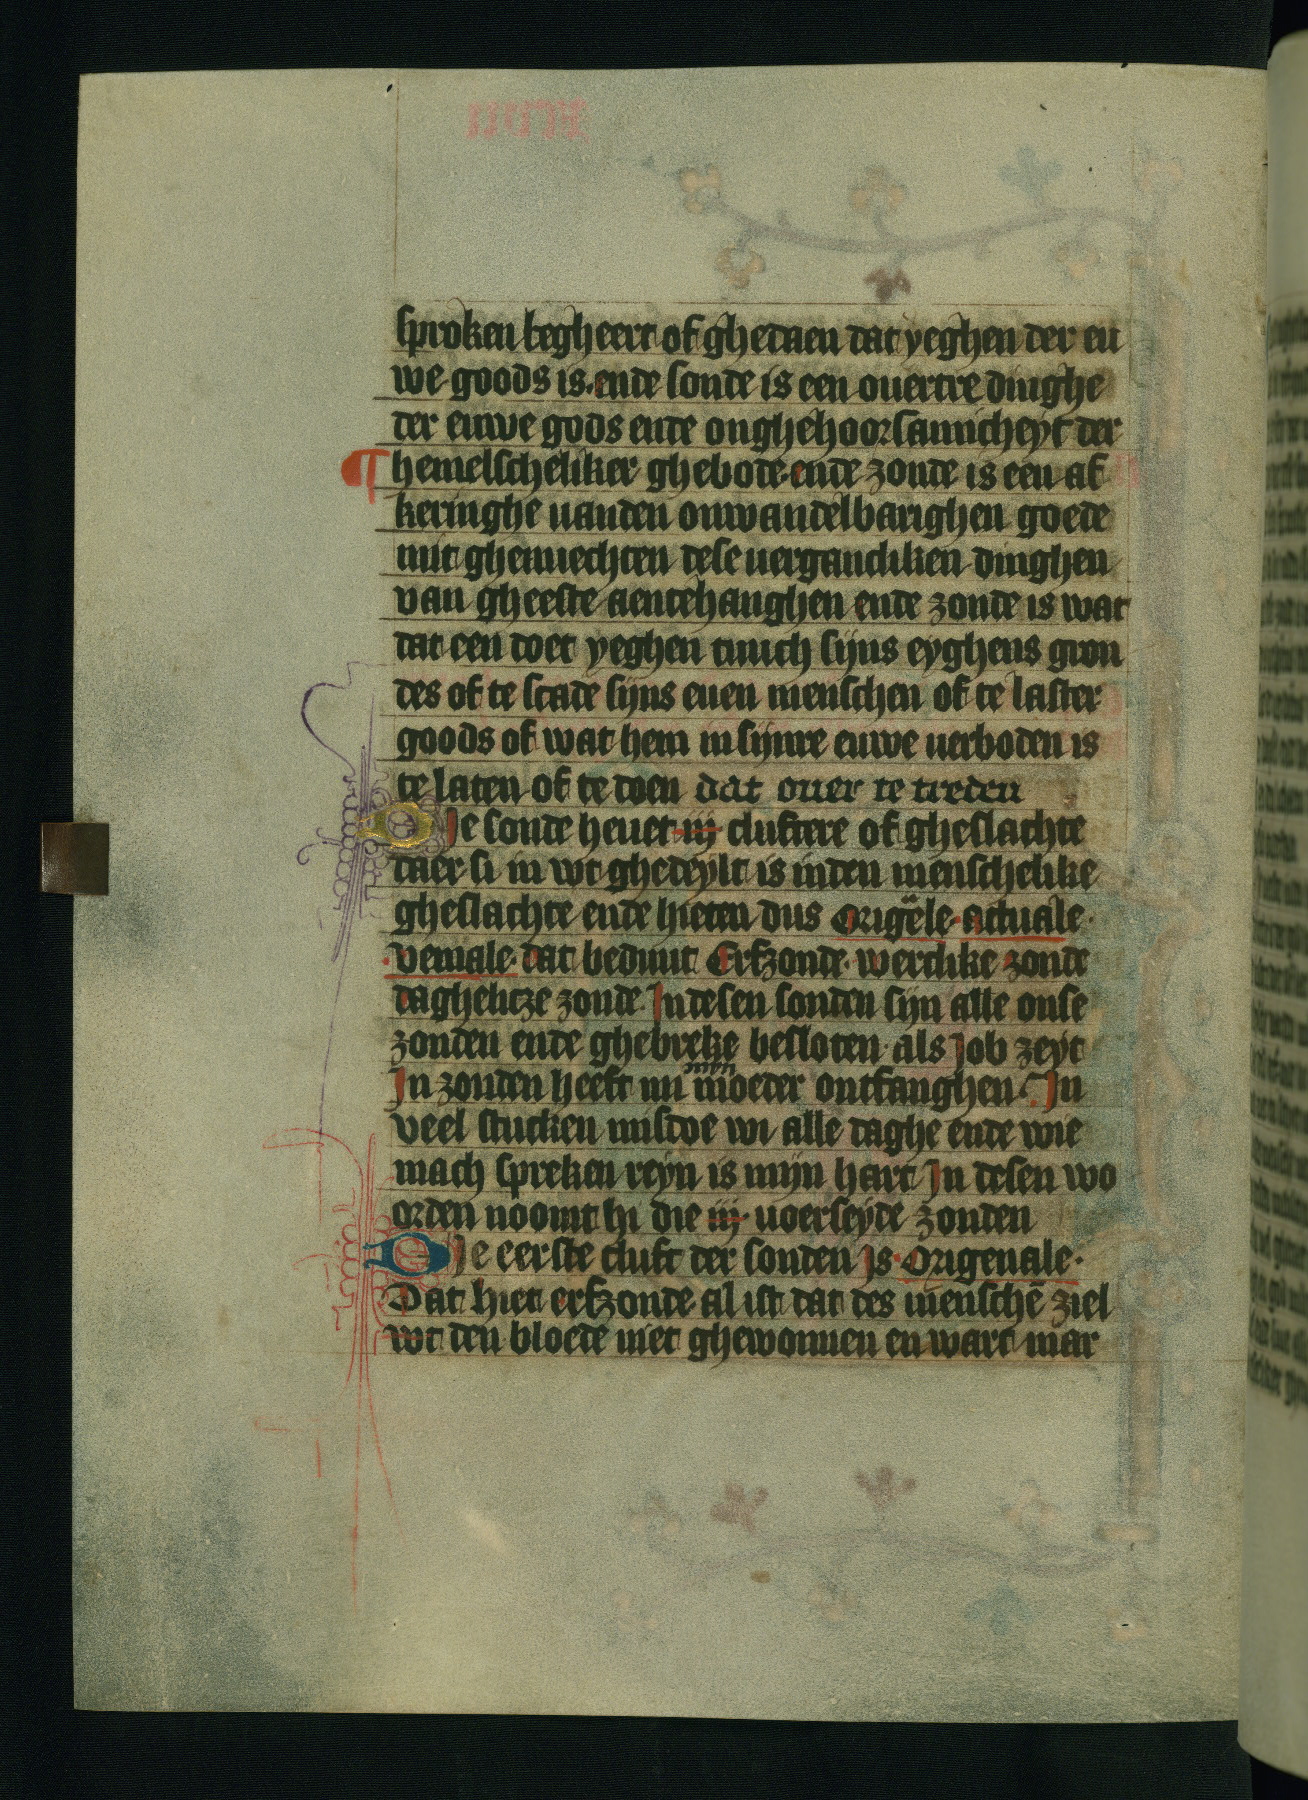 sproken begheert of ghedaen dat yeghen der eu
we goods is. ende sonde is een ouertre dinghe
der euwe gods ende onghehoorsamicheyt der
¶ hemelscheliker ghebode ende zonde is een af
keringhe uanden onwandelbarighen goede
mit ghenuechten dese uergancliken dinghen
van gheeste aentehanghen ende zonde is wat
dat een doet yeghen tuuch sijns eyghens gron
des of te scade sijns euen menschen of te laster
goods of wat hem in sijnre euwe uerboden is
te laten of te doen dat ouer te treden
Die sonde heuet iij cluftere of gheslachte
daer si in wt ghedeylt is inden menschelike
gheslachte ende hieten dus origēle · actuale ·
veniale · dat beduut Erfzonde · werclike zonde
daghelicze zonde · In desen sonden sijn alle onse
zonden ende ghebreke besloten · als Job zeyt
In zonden heeft mi mijn moeder ontfanghen · In
veel stucken misdoe wi alle daghe ende wie
mach spreken reyn is mijn hart In desen wo
orden noomt hi die iij · uoerseyde zonden
Die eerste cluft der sonden Is · Origenale ·
Dat hiet erfzonde · al ist dat des menschē ziel
wt den bloede niet ghewonnen en wart mar